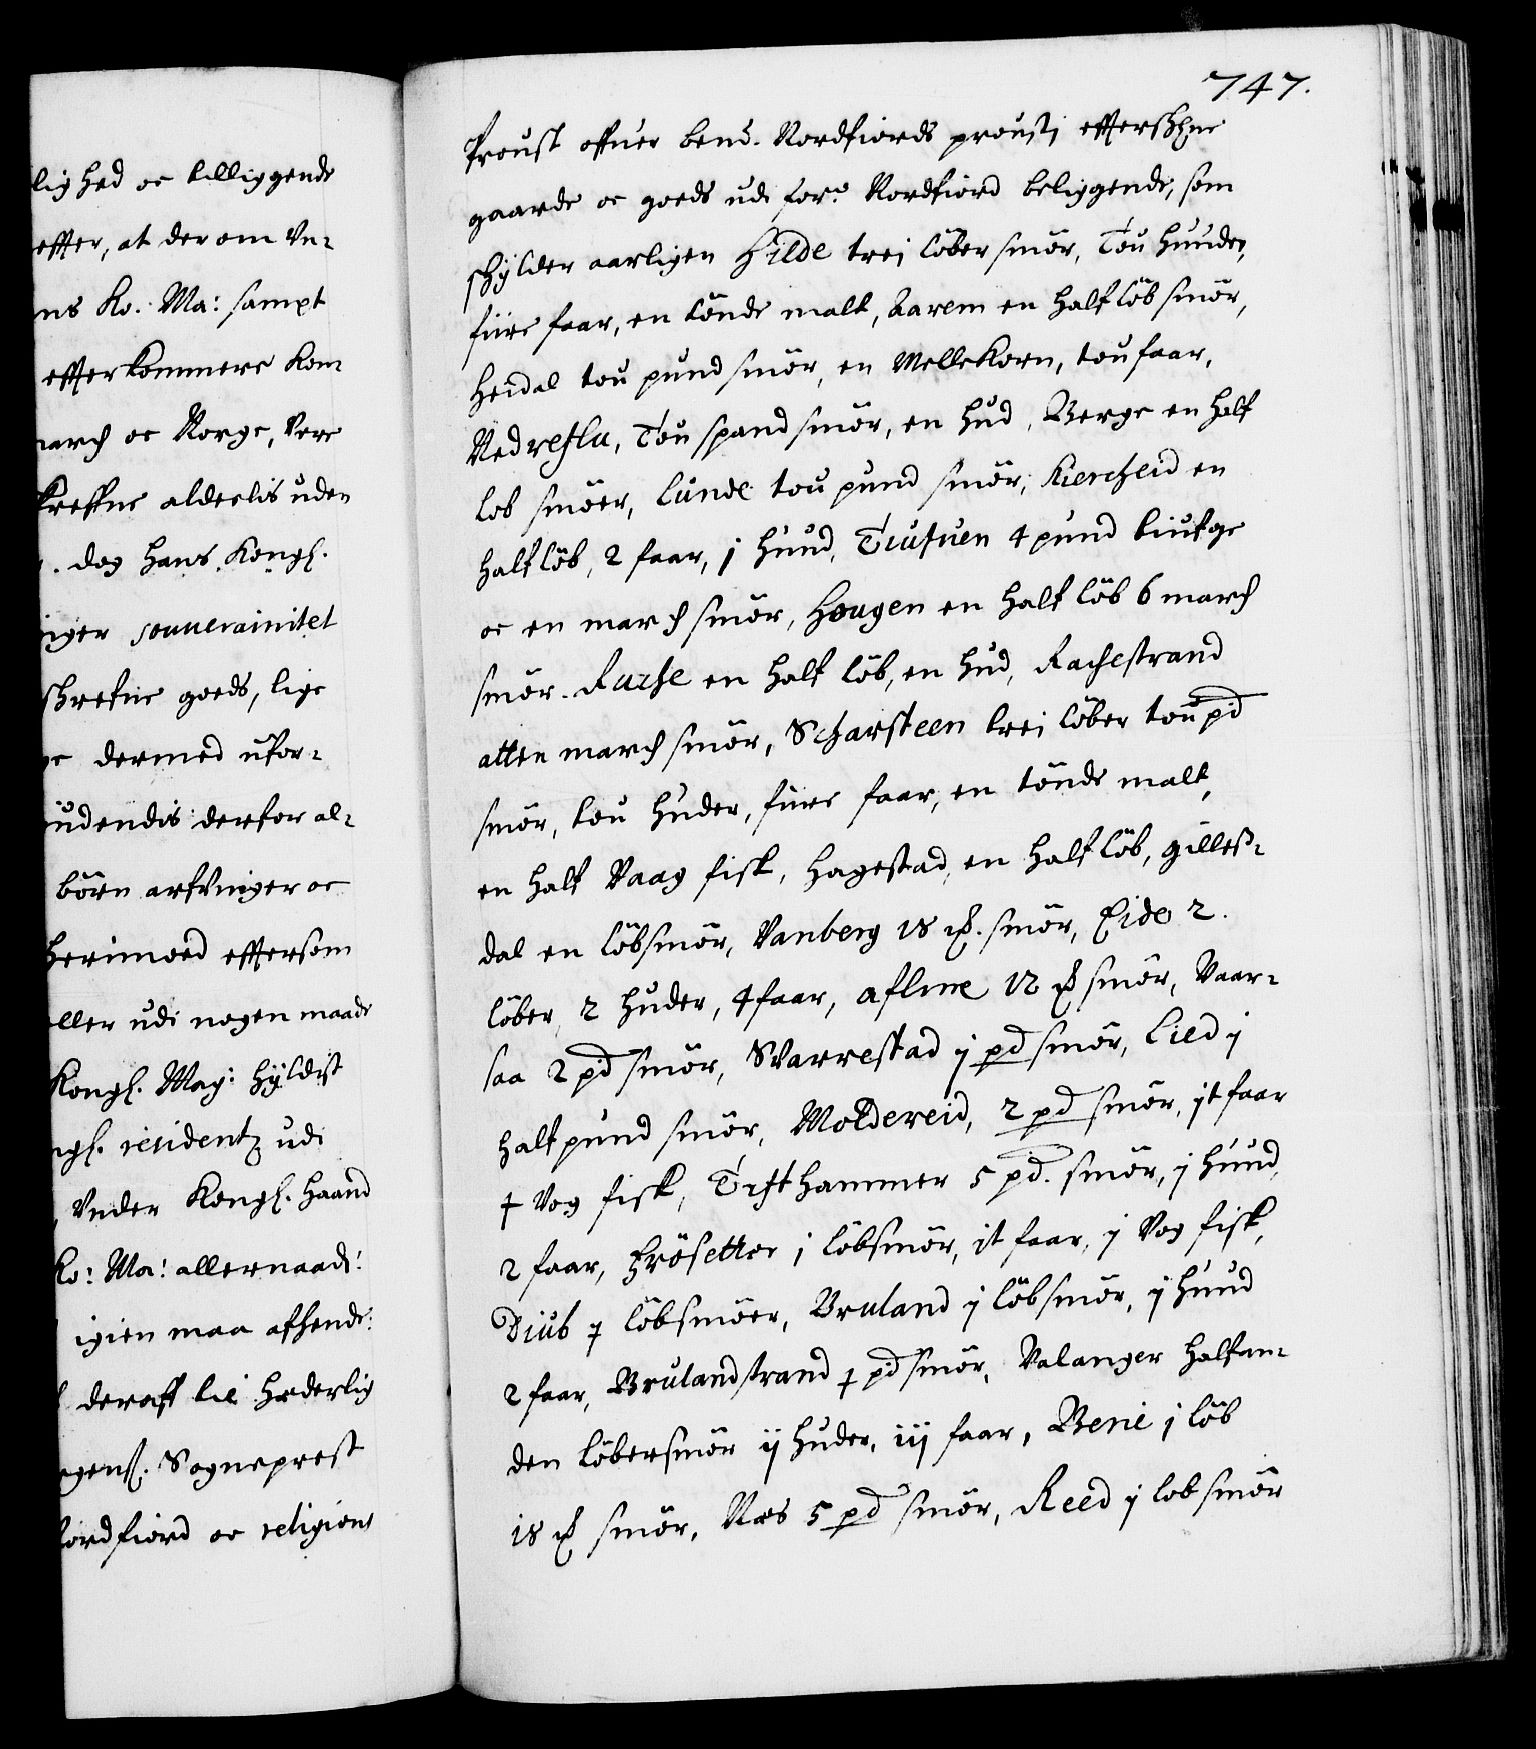 lighed oc tilliggende
effter, at der om Vn-
ns Ko. Ma: sampt
effterkommere Kon
march oc Norge, Vere
kreffne alderlis uden
. dog hans Kongl.
inger souverainitet
skrefne goeds, lige
ge dermed ufor-
iudendis derfor al-
börn arfvinger oc
herimoed effersom
eller udi nogen maade
Kongl. May: hyldist
ngl. residentz udi
, Vnder Kongl. Haand
Ko: Ma: allernaad:
igien maa afhende:
deraff til Hæderlig
egenß. Sogneprest
Nordfiord oc religions
747.
Proust offuer bend. Nordfiords prousti effterschne
gaarde oc goeds udi forn. Nordfiord beliggende, som
schylder aarligen Hilde trei löber smör, Tou huuder,
fiire faar, en tönde malt, Aarem en half löb smör,
Heidal tou pund smör, en Mellekorn, tou faar,
Nedreflu, Tou spand smör, en hud, Berge en half
lob smöer, Lunde tou pund smör, Kiercheid en
half löb, 2 faar, j huud, Tiufuen 4 pund tiufge
oc en march smör, Hougen en half löb 6 march
smör. Rucke en half löb, en hud, Rachestrand
atten march smör, Scharsteen trei löber tou pd
smör, tou huder, fiire faar, en tönde malt,
en half Vaag fisk, Hagestad en half löb, Gilles-
dal en löb smör, Vanberg 18 mk. smör, Eide 2.
löber, 2 huder, 4 faar, Aflme 12 mk smör, Vaar-
saa 2 pd smör, Svarrestad j pd smör, Lied j
half pund smör, Moldereid, 2 pd smör, jt faar
Vog fisk, Tisthammer 5 pd. smör, j huud,
2 faar, Frösetter j löb smör, jt faar, j Vog fisk,
Diub löb smöer, Bruland j löb smör, j huud
2 faar, Brulandstrand pd smör, Valanger halfan-
den löber smör ij huder, iij faar, Berie j löb
18 mk smör, Næs 5 pd smör, Reed j lob smör